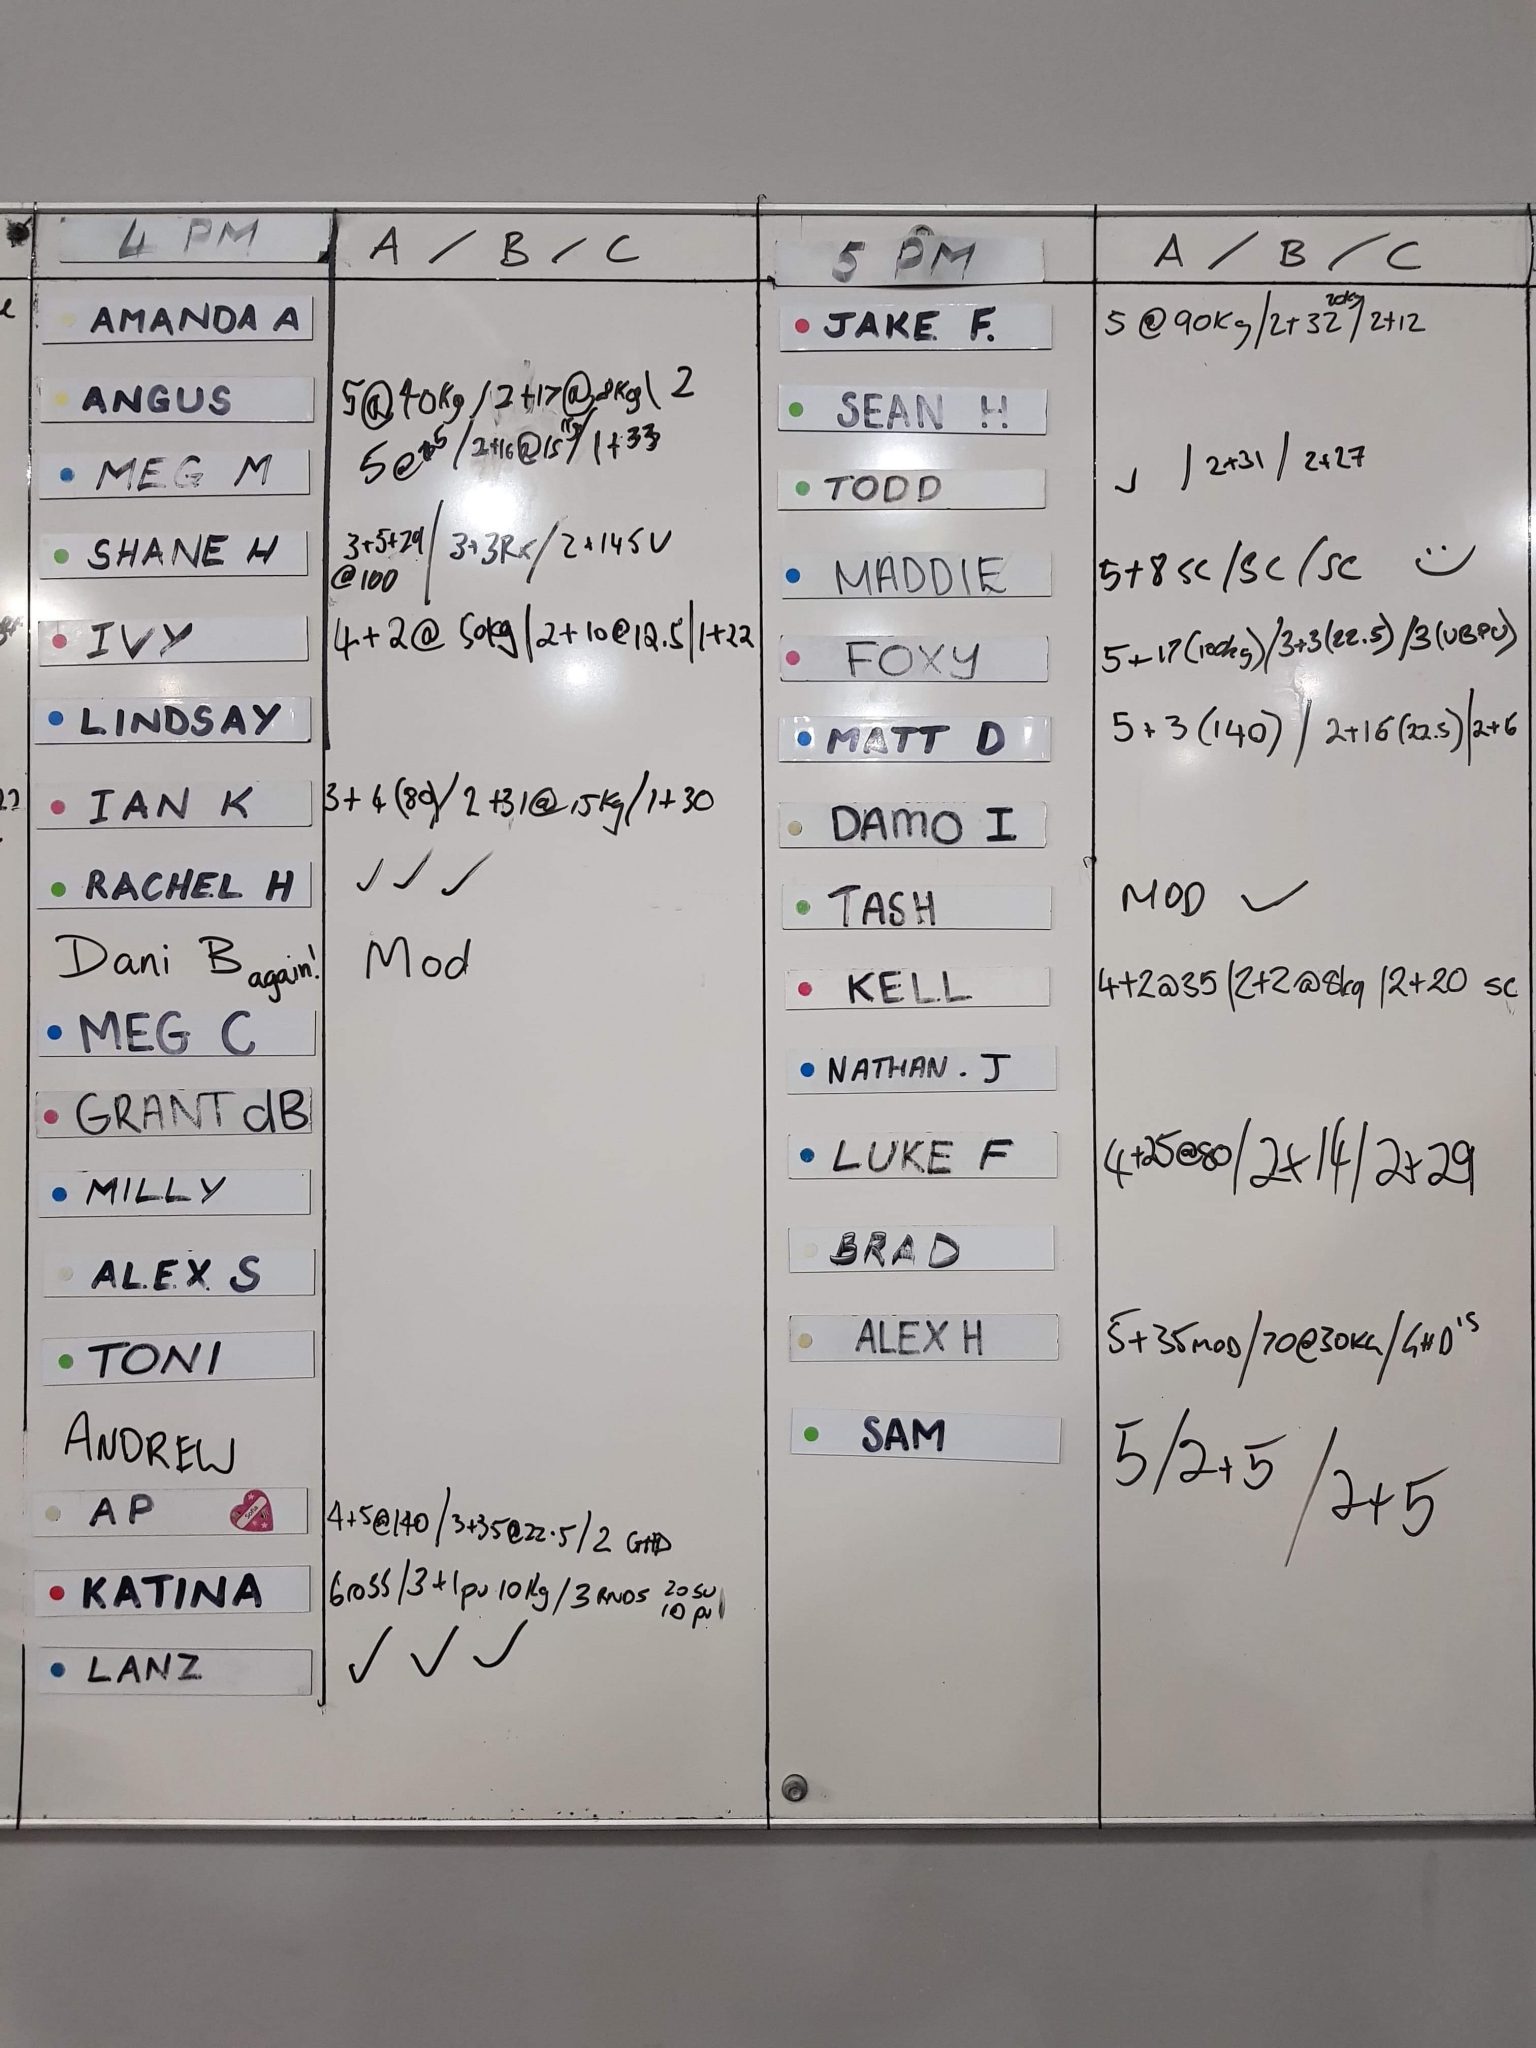 4 PM A / B / C
AMANDA A
ANGUS 5@40kg / 2+17@8kg \ 2
MEG M 5@ / 2+16@15 / 1+33
SHANE H 3+5+29 / 3+3Rx / 2+14SU
@100
IVY 4+2@ 50kg | 2+10@12.5 | 1+22
LINDSAY
IAN K 3+4(80) / 2+31@15kg / 1+30
RACHEL H ✓ ✓ ✓
Dani B again! Mod
MEG C
GRANT dB
MILLY
ALEX S
TONI
ANDREW
AP 4+5@140 / 3+35@22.5 / 2 GHD
KATINA 6ross / 3+1pu 10kg / 3 RNDS 20 SU
10 pu
LANZ ✓ ✓ ✓
5 PM A / B / C
20kg
JAKE F. 5@90kg / 2+32 / 2+12
SEAN H
TODD ✓ / 2+31 / 2+27
MADDIE 5+8 SC / SC / SC
FOXY 5+17(100kg) / 3+3(22.5) / 3(UBPU)
MATT D 5+3(140) / 2+16(22.5) | 2+6
DAMO I
TASH MOD ✓
KELL 4+2@35 / 2+2@8kg / 2+20 SC
NATHAN. J
LUKE F 4+25@80 / 2+14 / 2+29
BRAD
ALEX H 5+35MOD / 70@30KG / GHD'S
SAM 5 / 2+5 / 2+5